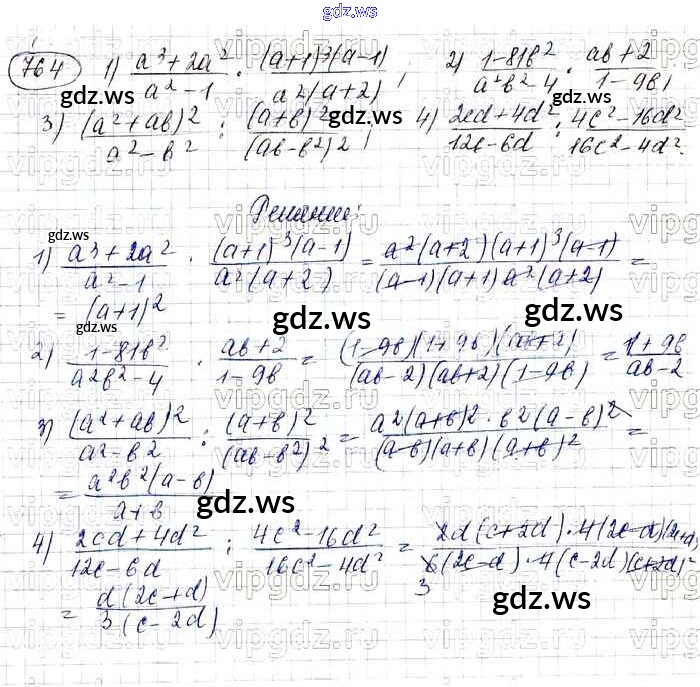 gdz.ws
764 1) (a³+2a²)/(a²-1) · ((a+1)³(a-1))/(a²(a+2)); 2) (1-81b²)/(a²b²-4) · (ab+2)/(1-9b);
3) (a²+ab)²/(a²-b²) : (a+b)²/(ab-b²)²; 4) (2cd+4d²)/(12c-6d) : (4c²-16d²)/(16c²-4d²).
Решение:
1) (a³+2a²)/(a²-1) · ((a+1)³(a-1))/(a²(a+2)) = (a²(a+2)(a+1)³(a-1))/((a-1)(a+1)a²(a+2)) =
= (a+1)²
2) (1-81b²)/(a²b²-4) · (ab+2)/(1-9b) = ((1-9b)(1+9b)(ab+2))/((ab-2)(ab+2)(1-9b)) = (1+9b)/(ab-2)
3) (a²+ab)²/(a²-b²) : (a+b)²/(ab-b²)² = (a²(a+b)²·b²(a-b)²)/((a-b)(a+b)(a+b)²) =
= (a²b²(a-b))/(a+b)
4) (2cd+4d²)/(12c-6d) : (4c²-16d²)/(16c²-4d²) = (2d(c+2d)·4(2c-d)(2c+d))/(6(2c-d)·4(c-2d)(c+2d)) =
3
= (d(2c+d))/(3(c-2d))